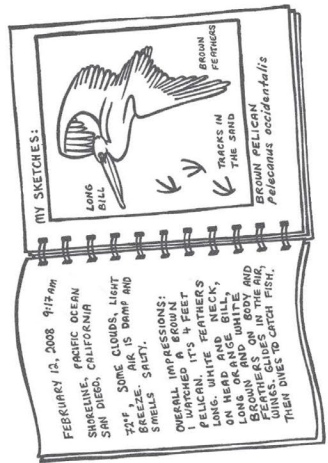 FEBRUARY 12, 2008 9:17 AM
SHORELINE, PACIFIC OCEAN
SAN DIEGO, CALIFORNIA
72°F SOME CLOUDS, LIGHT
BREEZE. AIR IS DAMP AND
SMELLS SALTY.
OVERALL IMPRESSIONS:
I WATCHED A BROWN
PELICAN. IT'S 4 FEET
LONG. WHITE FEATHERS
ON HEAD AND NECK,
LONG ORANGE BILL,
BROWN AND WHITE
FEATHERS ON BODY AND
WINGS. GLIDES IN THE AIR,
THEN DIVES TO CATCH FISH.
MY SKETCHES:
LONG
BILL
BROWN
FEATHERS
TRACKS IN
THE SAND
BROWN PELICAN
pelecanus occidentalis